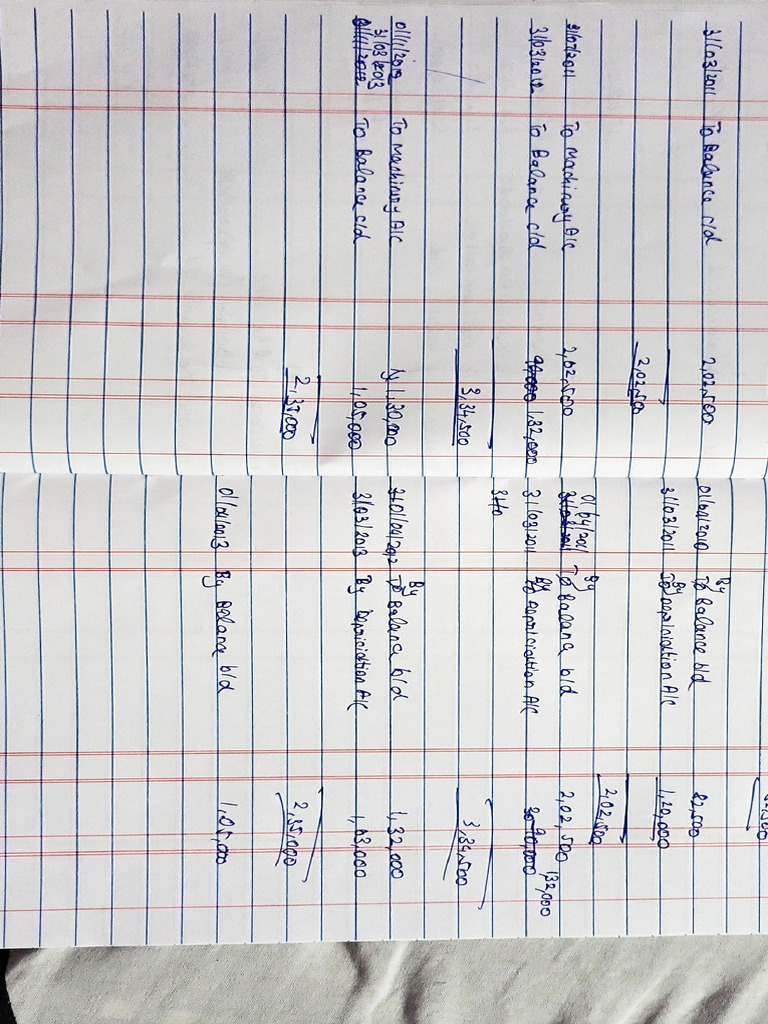 31/03/2011 To Balance c/d 2,02,500 01/04/2010 By Balance b/d 82,500
31/03/2011 By Depriciation A/C 1,20,000
2,02,500 2,02,500
31/07/2011 To Machinery A/C 2,02,500 01/04/2011 By Balance b/d 2,02,500
31/03/2012 To Balance c/d 1,32,000 31/03/2011 By Depriciation A/C 132,000
3,34,500 3,34,500
01/11/2012 To Machinery A/C 1,30,000 01/04/2012 By Balance b/d 1,32,000
31/03/2013 To Balance c/d 1,05,000 31/03/2013 By Depriciation A/C 1,03,000
2,35,000 2,35,000
01/04/2013 By Balance b/d 1,05,000